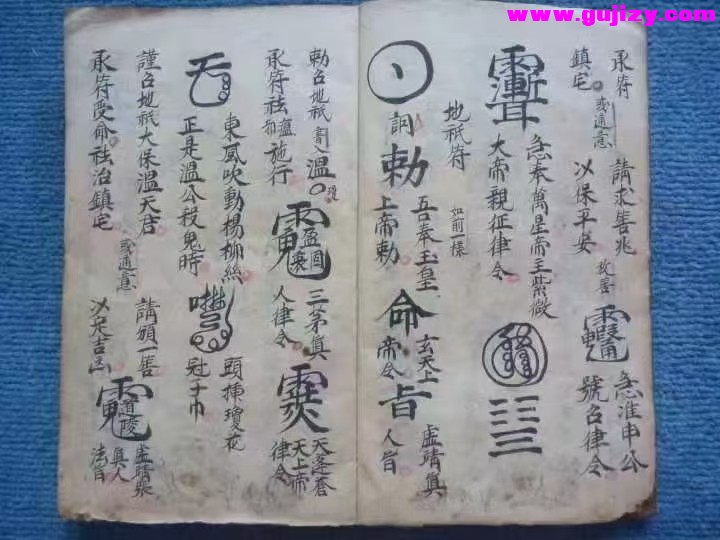 www.gujizy.com
承符
鎮宅
或通意
請求善兆
以保平安
急准申公
號召律令
急奉萬星帝主紫微
大帝親征律令
地祇符
如前一樣
勅
吾奉玉皇
上帝勅
命
玄天上
帝令
旨
虛靖真
人旨
勅召地祇
書入
溫
承符祛瘟
施行
三茅真
人律令
天蓬蒼
天上帝
律令
東風吹動楊柳絲
正是溫公殺鬼時
頭插瓊花
冠子巾
謹召地祇大保溫天君
承符受命祛治鎮宅
或通意
請頒一善
以定吉凶
道陵
虛靖張
真人
法旨